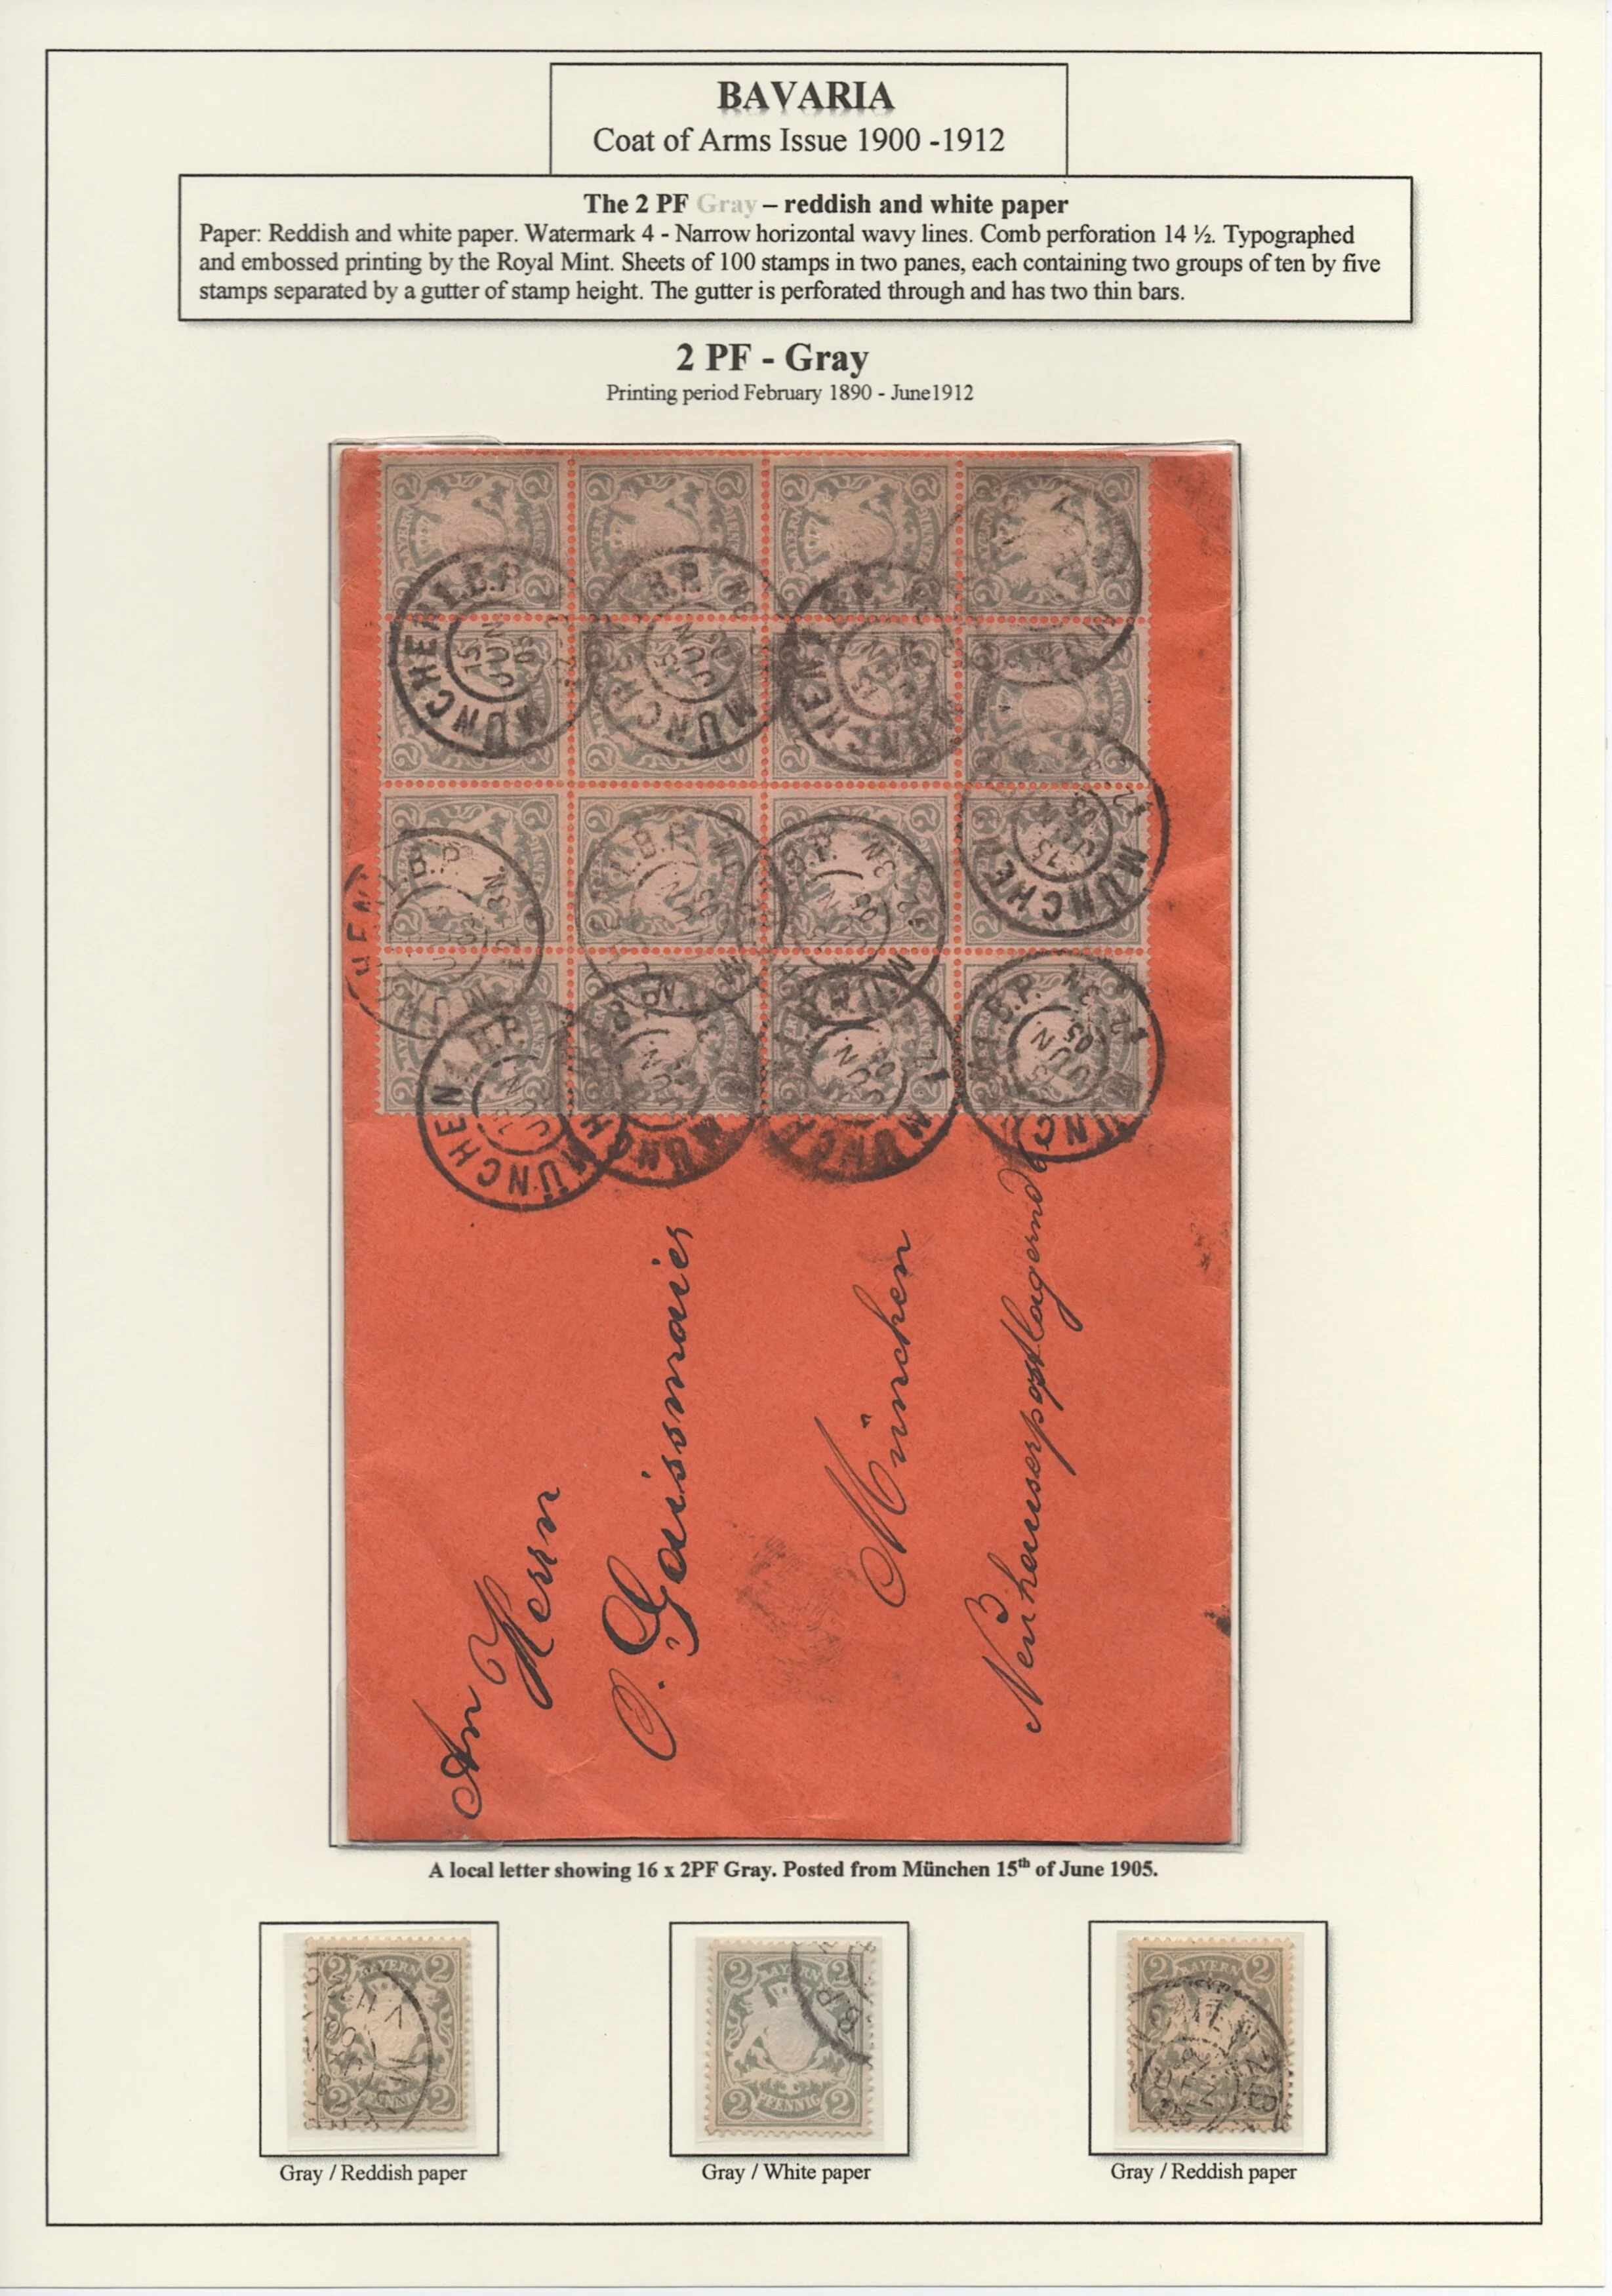 BAVARIA
Coat of Arms Issue 1900 -1912
The 2 PF Gray – reddish and white paper
Paper: Reddish and white paper. Watermark 4 - Narrow horizontal wavy lines. Comb perforation 14 ½. Typographed
and embossed printing by the Royal Mint. Sheets of 100 stamps in two panes, each containing two groups of ten by five
stamps separated by a gutter of stamp height. The gutter is perforated through and has two thin bars.
2 PF - Gray
Printing period February 1890 - June1912
MÜNCHEN I.B.P.
15 JUN 05
An Herrn
O. Gaissmaier
München
Neuhauserpostlagernd
A local letter showing 16 x 2PF Gray. Posted from München 15th of June 1905.
2 BAYERN 2
2 PFENNIG 2
2 BAYERN 2
2 PFENNIG 2
B.P.
2 BAYERN 2
Gray / Reddish paper
Gray / White paper
Gray / Reddish paper